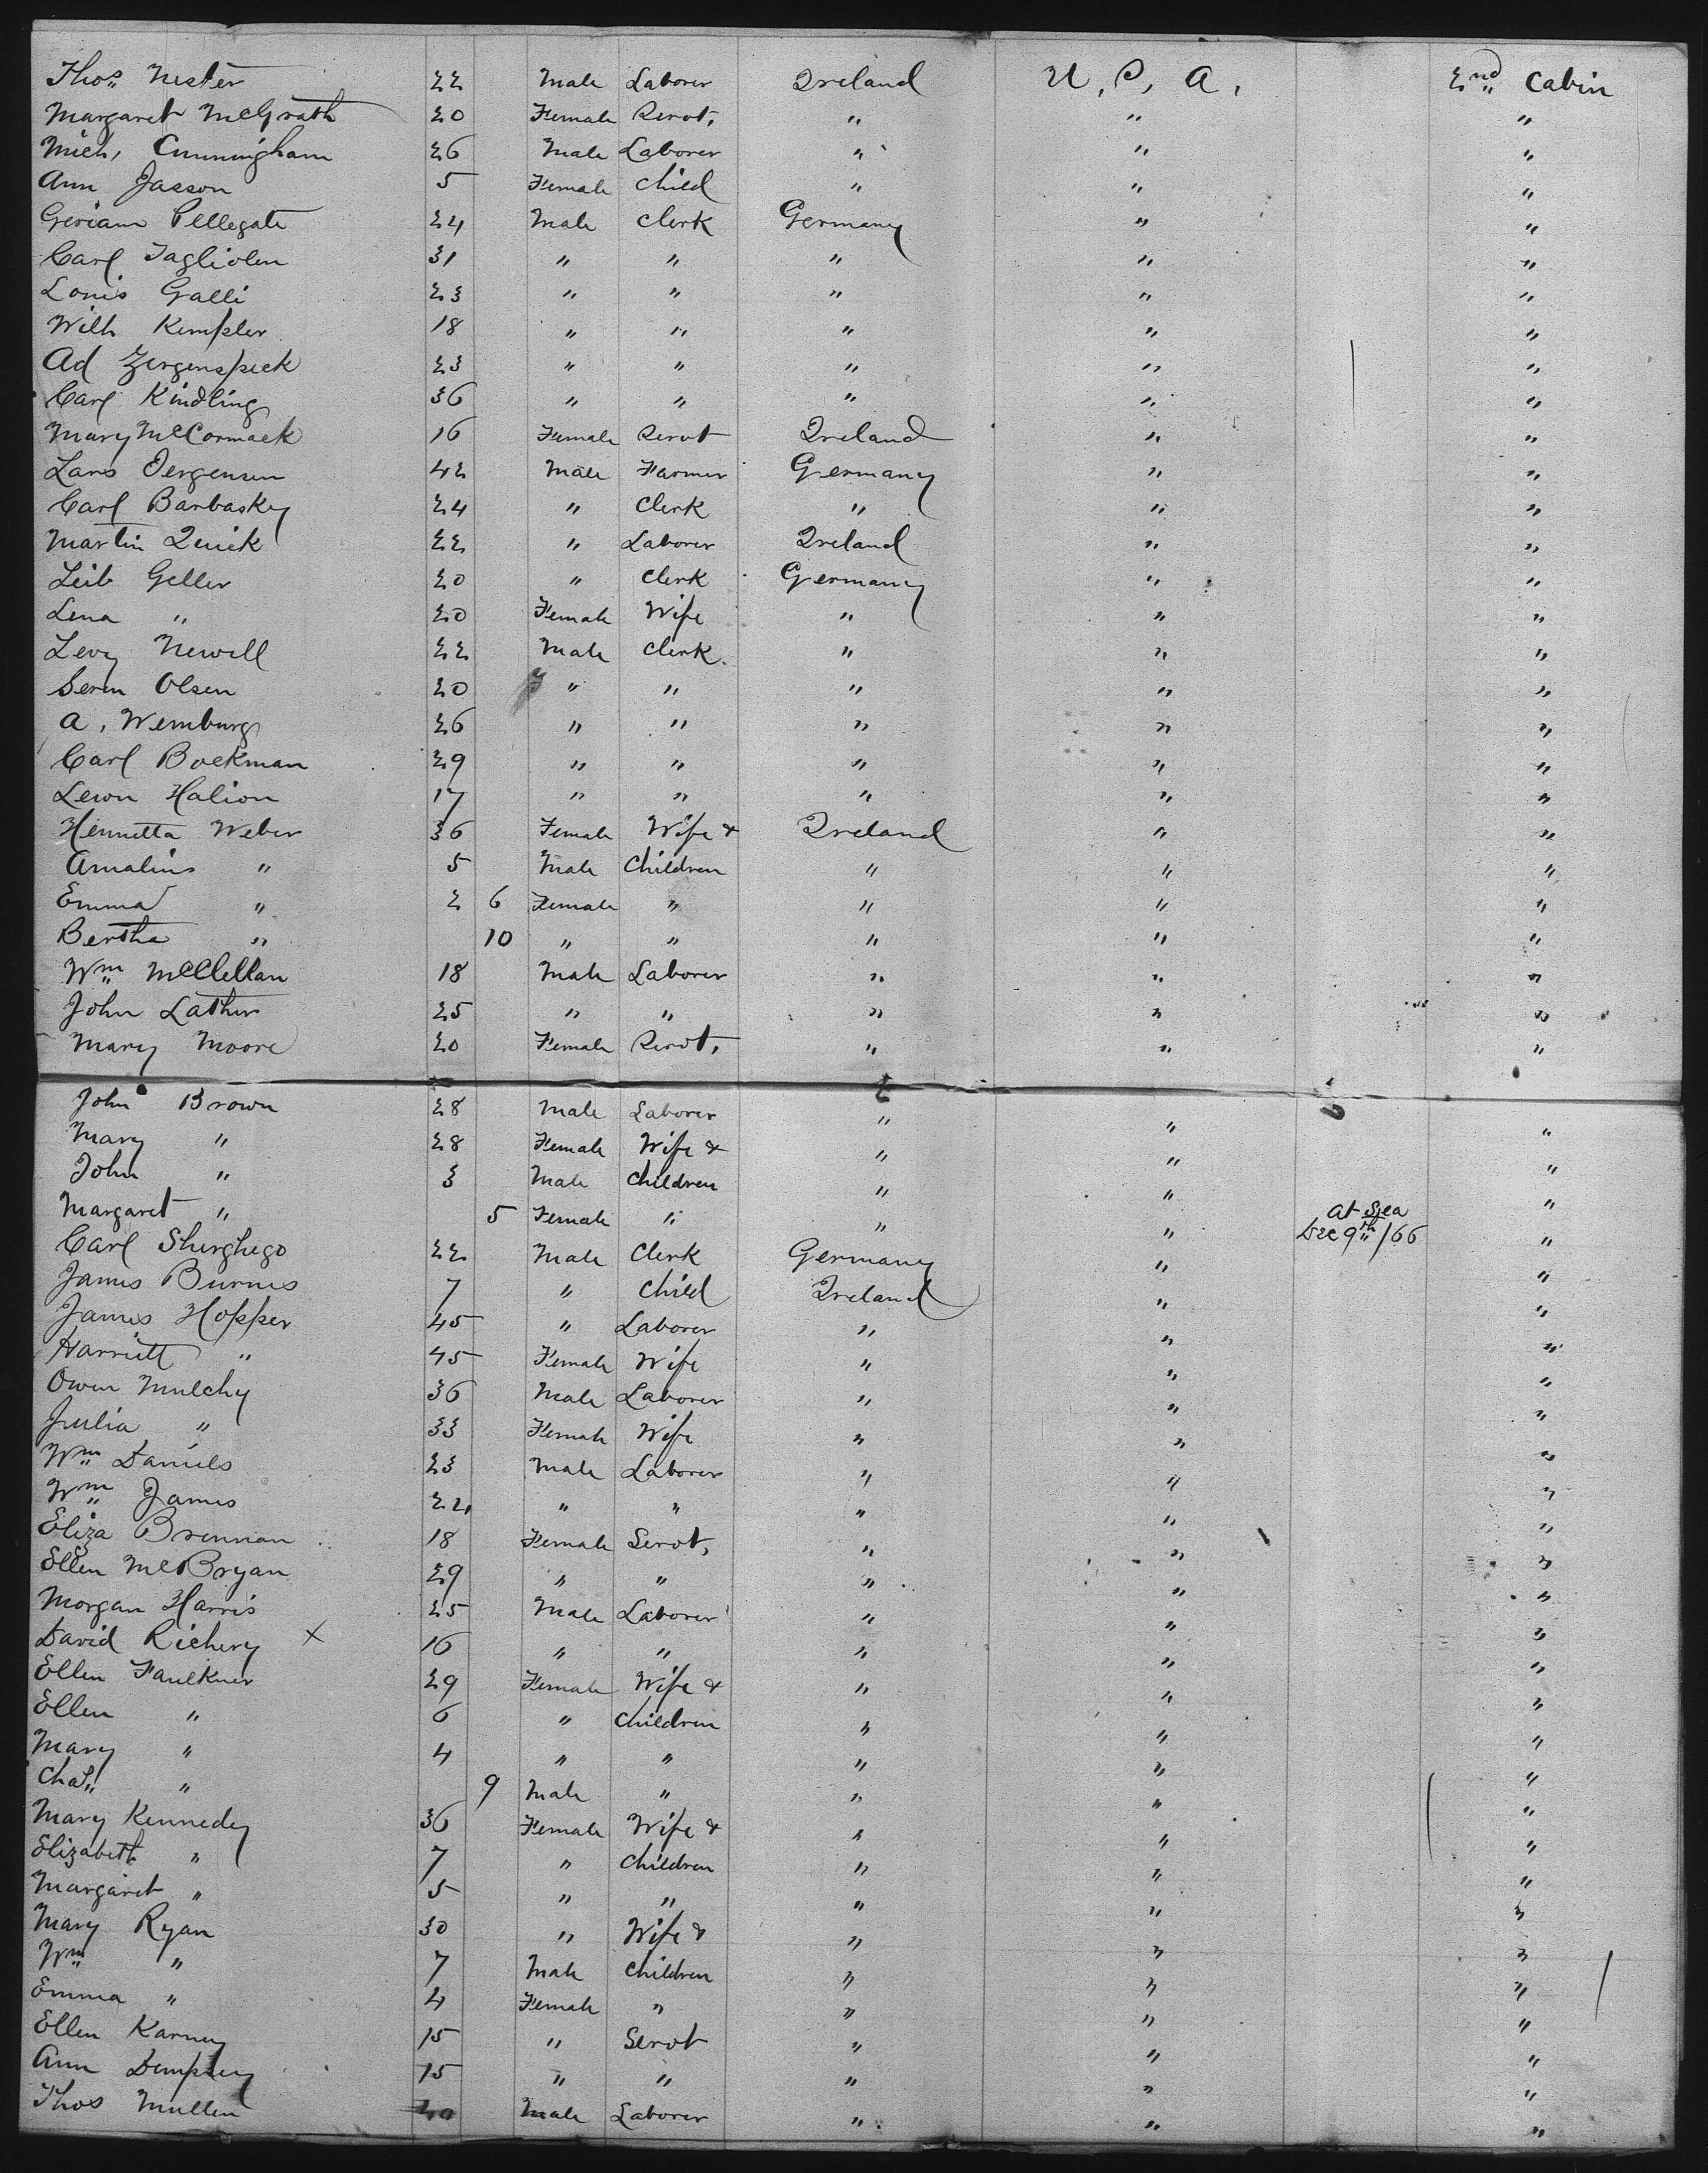 Thos Nester 22 Male Laborer Ireland U. S. A. 2nd Cabin
Margaret McGrath 20 Female Servt. " " "
Mich, Cunningham 26 Male Laborer " " "
Ann Jasson 5 Female Child " " "
Geriam Pellegate 24 Male Clerk Germany " "
Carl Tagliolen 31 " " " " "
Louis Galli 23 " " " " "
Wilh Kempler 18 " " " " "
Ad Zergenspeck 23 " " " " "
Carl Kindling 36 " " " " "
Mary McCormack 16 Female Servt Ireland " "
Lars Oergensen 42 Male Farmer Germany " "
Carl Barbasky 24 " Clerk " " "
Martin Quick 22 " Laborer Ireland " "
Leib Geller 20 " Clerk Germany " "
Lena " 20 Female Wife " " "
Levy Newell 22 Male Clerk " " "
Seren Olsen 20 " " " " "
A, Wemburg 26 " " " " "
Carl Bockman 29 " " " " "
Lewn Halion 17 " " " " "
Hennetta Weber 36 Female Wife & Ireland " "
Amalius " 5 Male Children " " "
Emma " 2 6 Female " " " "
Bertha " 10 " " " " "
Wm McClellan 18 Male Laborer " " "
John Lather 25 " " " " "
Mary Moore 20 Female Servt, " " "
John Brown 28 Male Laborer " " "
Mary " 28 Female Wife & " " "
John " 3 Male Children " " "
Margaret " 5 Female " " " At Sea Dec 9th /66 "
Carl Sherghego 22 Male Clerk Germany " "
James Burnes 7 " Child Ireland " "
James Hopper 45 " Laborer " " "
Harriett " 45 Female Wife " " "
Owen Mulchy 36 Male Laborer " " "
Julia " 33 Female Wife " " "
Wm Daniels 23 Male Laborer " " "
Wm James 24 " " " " "
Eliza Brennan 18 Female Servt, " " "
Ellen McBryan 29 " " " " "
Morgan Harris 25 Male Laborer " " "
David Richery X 16 " " " " "
Ellen Faulkner 29 Female Wife & " " "
Ellen " 6 " Children " " "
Mary " 4 " " " " "
Chas " 9 Male " " " "
Mary Kennedy 36 Female Wife & " " "
Elizabeth " 7 " Children " " "
Margaret " 5 " " " " "
Mary Ryan 30 " Wife & " " "
Wm " 7 Male Children " " "
Emma " 4 Female " " " "
Ellen Karney 15 " Servt " " "
Ann Dempsey 15 " " " " "
Thos Mullen Male Laborer " " "